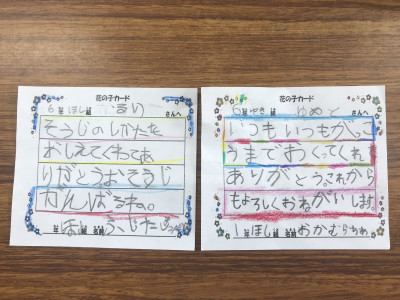 花の子カード
6年ほし組 さんへ
そうじのしかたを
おしえてくれてあ
りがとうおそうじ
がんばるね。
年 組 名前 ほし ふじた
花の子カード
6年ゆき組 ゆめと さんへ
いつもいつもがっこ
うまでおくってくれ
ありがとう。これから
もよろしくおねがいします
1年ほし組 名前 おかむらちわ